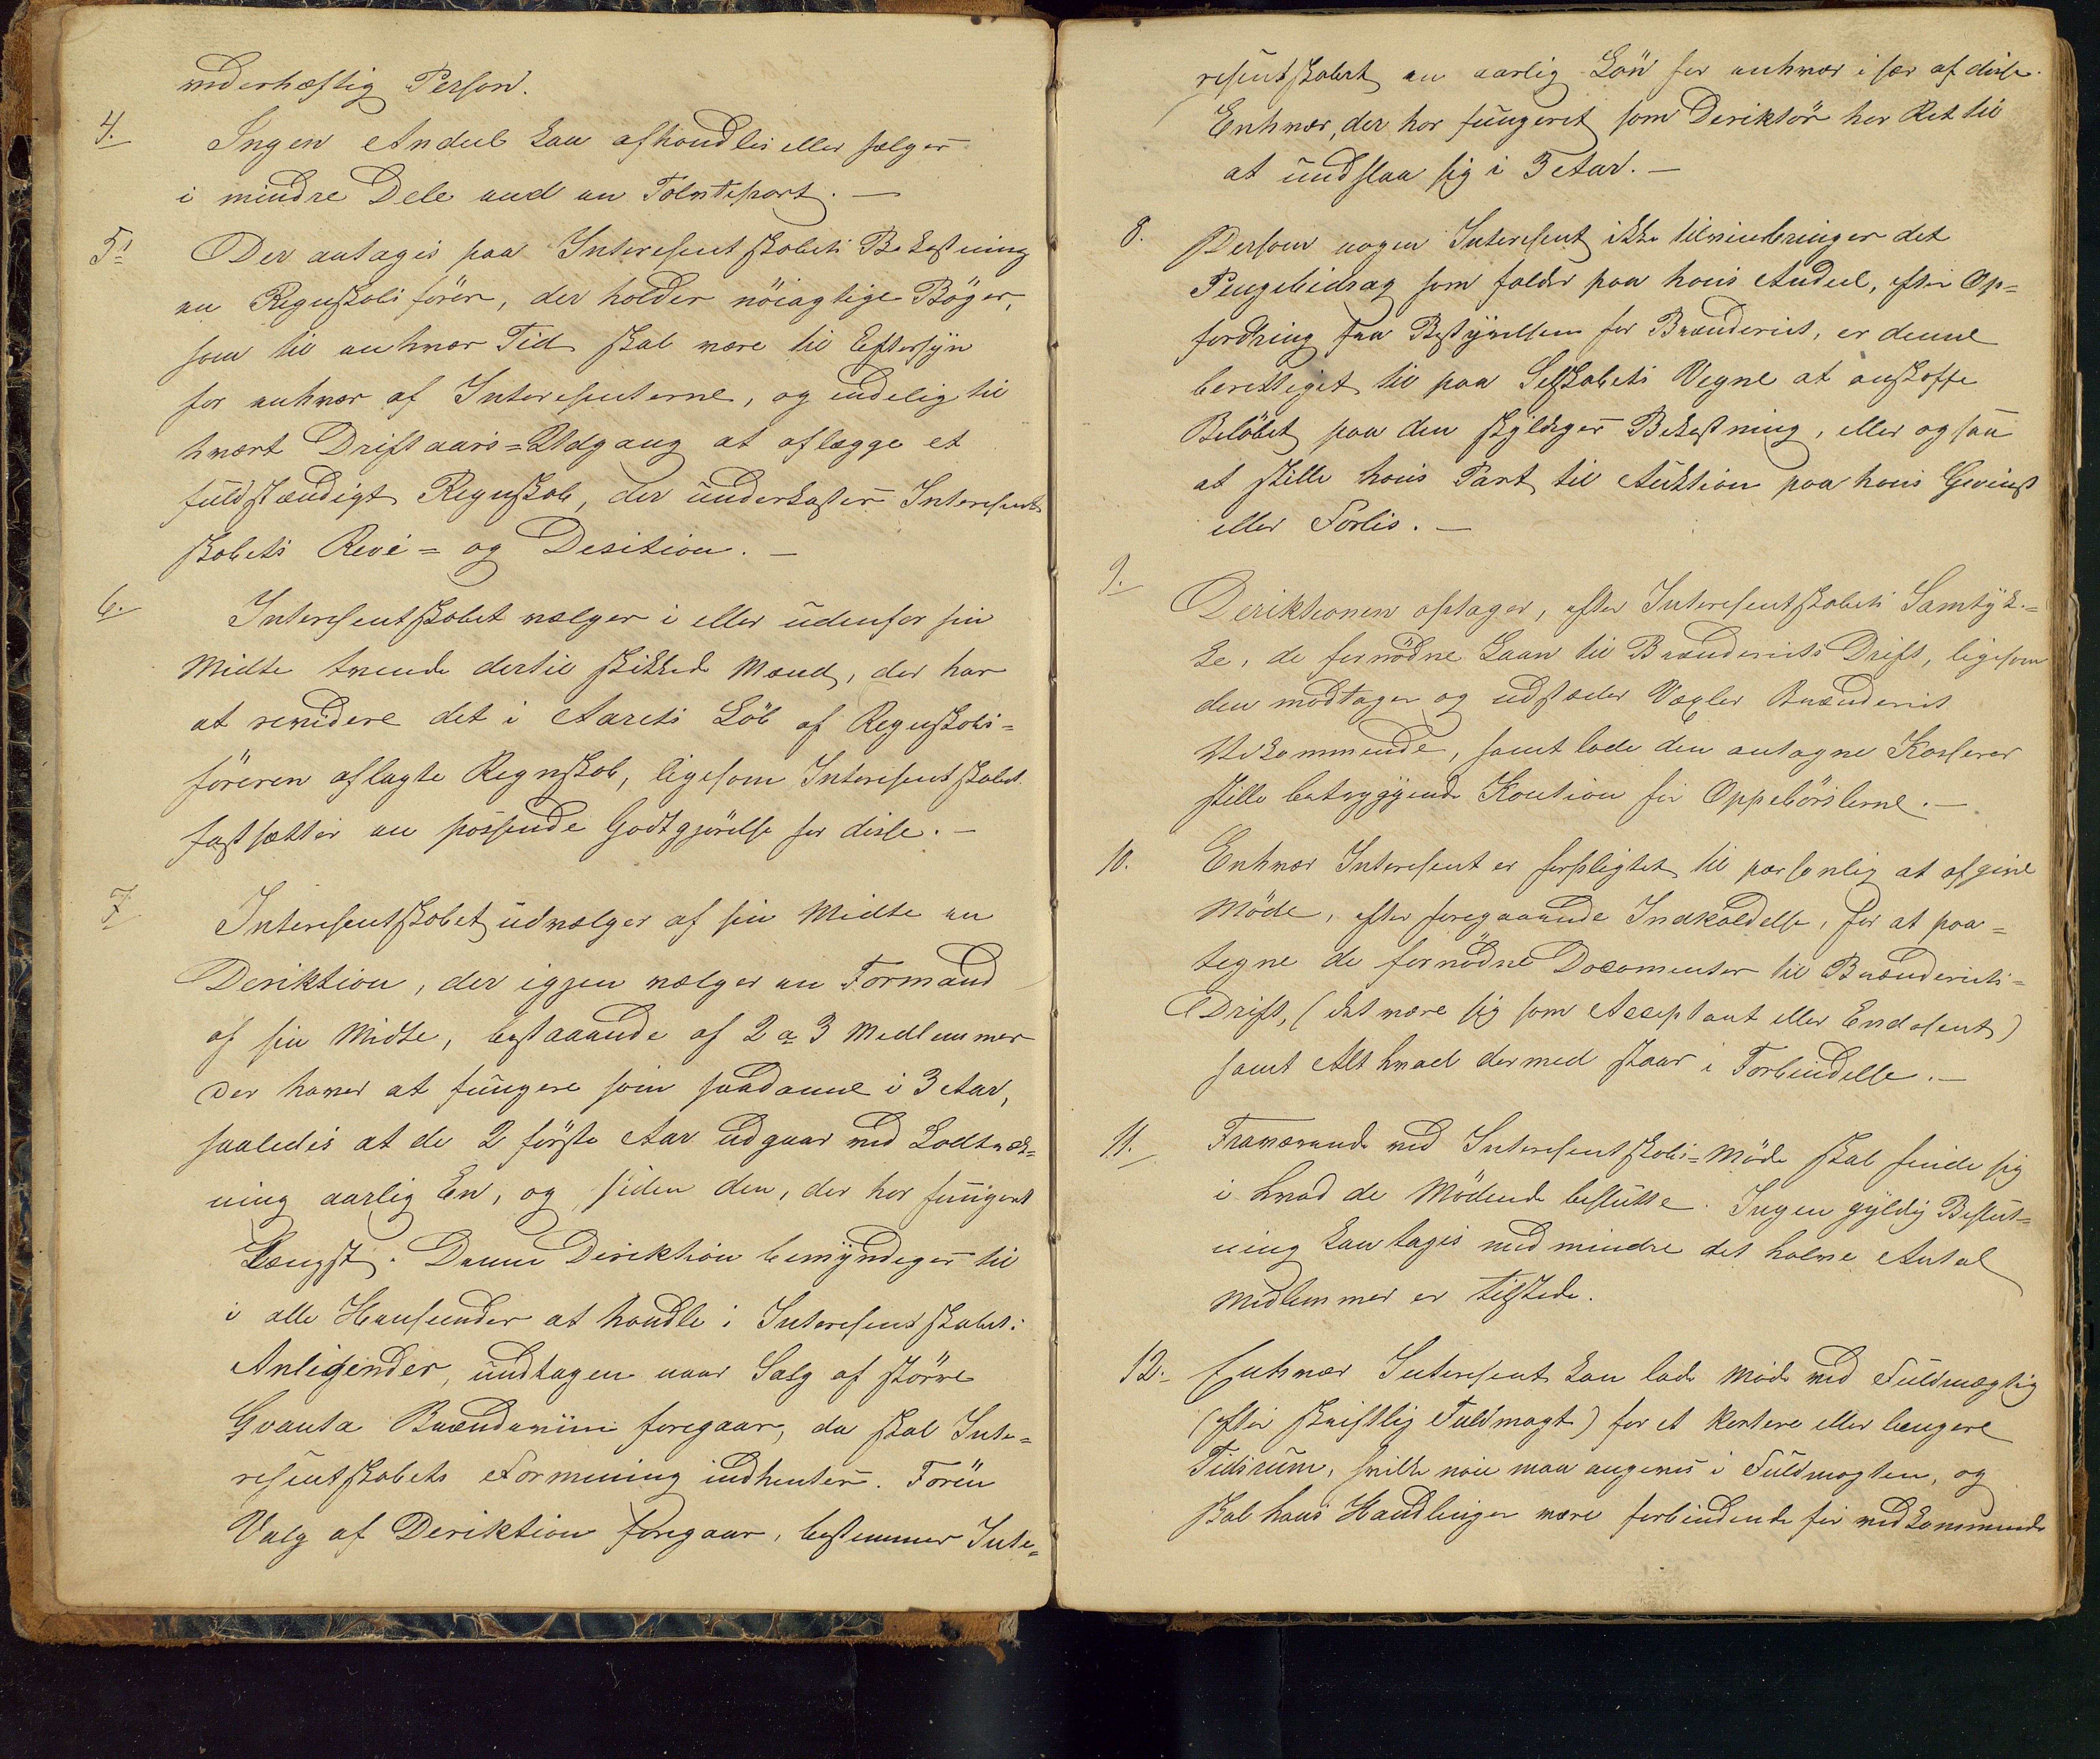 vederhæftig Person.
4. Ingen Andeel kan afhændles eller sælges
i mindre Dele end en Tolvtepart. —
5. Der antages paa Interesentskabets Bekostning
en Regnskabsfører, der holder nöiagtige Böger,
som til enhver Tid skal være til Eftersyn
for enhver af Interesenterne, og endelig til
hvært Driftaars=Udgang at aflægge et
fuldstændigt Regnskab, der underkastes Interesent
skabets Revi= og Desition. —
6. Interesentskabet vælger i eller udenfor sin
Midte tvende dertil skikkede Mænd, der har
at revidere det i Aarets Löb af Regnskabs=
föreren aflagte Regnskab, ligesom Interesentskabet
fastsætter en passende Godtgjörelse for disse. —
7. Interesentskabet udvælger af sin Midte en
Deriktion, der igjen vælger en Formand
af sin Midte, bestaaende af 2 a 3 Medlemmer
der haver at fungere som saadanne i 3 Aar,
saaledes at de 2 förste Aar udgaar ved Lodtræk=
ning aarlig En, og siden den, der har fungeret
Længst. Denne Deriktion bemyndiges til
i alle Henseender at handle i Interesentskabets
Anligender, undtagen naar Salg af större
Qvanta Brændeviin foregaar, da skal Inte=
resentskabets Formening indhentes. Förän
Valg af Deriktion foregaar, bestemmer Inte=
resentskabet en aarlig Lön for enhver især af disse.
Enhver, der har fungeret som Deriktör har Ret til
at undslaa sig i 3 Aar. —
8. Dersom nogen Interesent ikke tilveiebringer det
Pengebidrag som falder paa hans Andeel, efter Op=
fordring fra Bestyrelsen for Brænderiet, er denne
berettiget til paa Selskabets Vegne at anskaffe
Belöbet paa den skyldiges Bekostning, eller ogsaa
at stille hans Part til Auktion paa hans Gevinst
eller Forlis. —
9. Deriktionen optager, efter Interesentskabets Samtyk=
ke, de fornödne Laan til Brænderiets Drift, ligesom
den modtager og udstæder Vexler Brænderiet
Vedkommende, samt lade den antagne Kasserer
stille betryggende Kaution for Oppebörslerne. —
10. Enhver Interesent er forpligtet til personlig at afgive
Möde, efter foregaaende Indkaldelse, for at paa=
tegne de fornödne Documenter til Brænderiets=
Drift, (det være sig som Acceptant eller Endosent)
samt Alt hvad dermed staar i Forbindelse. —
11. Fraværende ved Interesentskabs=Möde skal finde sig
i hvad de Mödende beslutte. Ingen gyldig Beslut=
ning kan tages med mindre det halve Antal
Medlemmer er tilstede.
12. Enhver Interesent kan lade möde ved Fuldmægtig
(efter skriftlig Fuldmagt) for et kortere eller længere
Tidsrum, hvilke nöie maa angives i Fuldmagten, og
skal hans Handlinger være forbindende for vedkommende